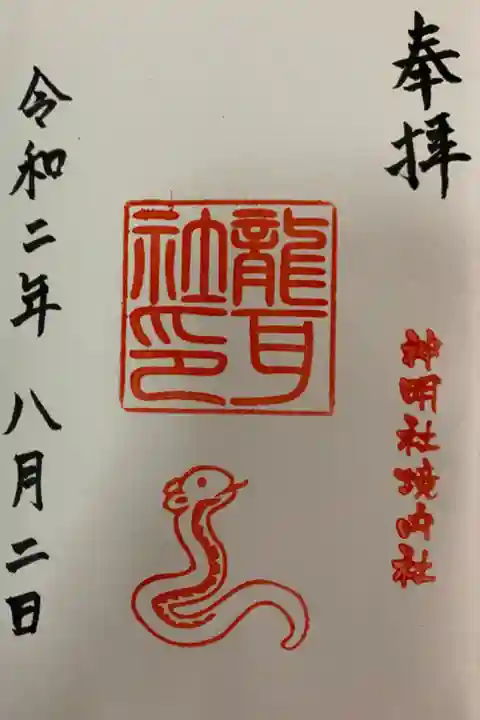 奉拝
神明社境内社
龍耳社印
令和二年 八月二日